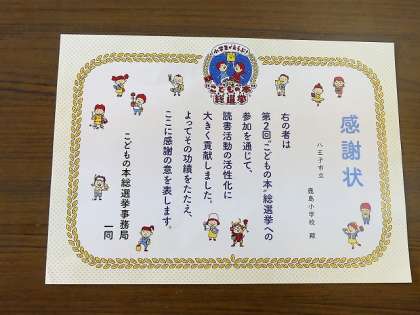 小学生がえらぶ!
"こどもの本"
総選挙
感謝状
八王子市立 鹿島小学校 殿
右の者は
第2回"こどもの本"総選挙への
参加を通じて、
読書活動の活性化に
大きく貢献しました。
よってその功績をたたえ、
ここに感謝の意を表します。
こどもの本総選挙事務局
一同